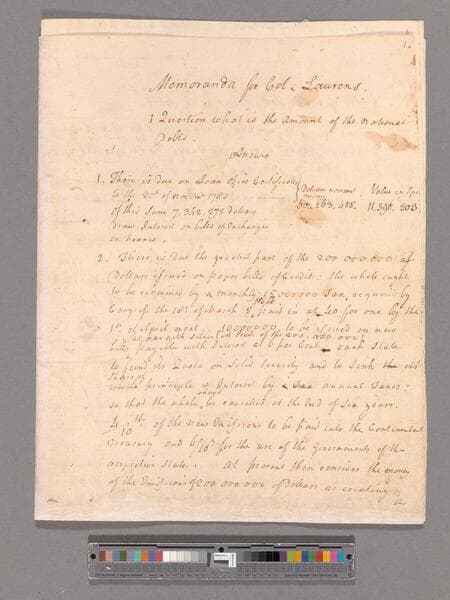 Memoranda for Col. Laurens.
1 Question what is the amount of the National
Debts.
Answer
1. There is due on Loan Office Certificates
to the of 1780
Dollars nominal Value in Spe
No. 163, 458. 11,396, 203
of this Sum 7,342,278 Dollars
draw Interest on bills of Exchange
on France.
2. There is due the greatest part of the 200 000 000 of
Dollars issued on paper bills of Credit: the whole ought
to be redeemed by a monthly 15000000 Tax, required by
Congress the 18th of March paid in at 40 for one by the
1st of April next. 10,000000 to be issued on new
bills payable with Interest at 6 per Cent each State
to fund its Quota on Solid Security and to Sink the
share of
principle & Interest by Six annual Taxes:
so that the whole should be cancelled at the End of Six years.
4/10th of the new Emissions to be paid into the Continental
Treasury and 6/10th for the use of the Governments of th
respective States. At present then consider the money
of the Emissions of 200 000 000 of Dollars as creating
a